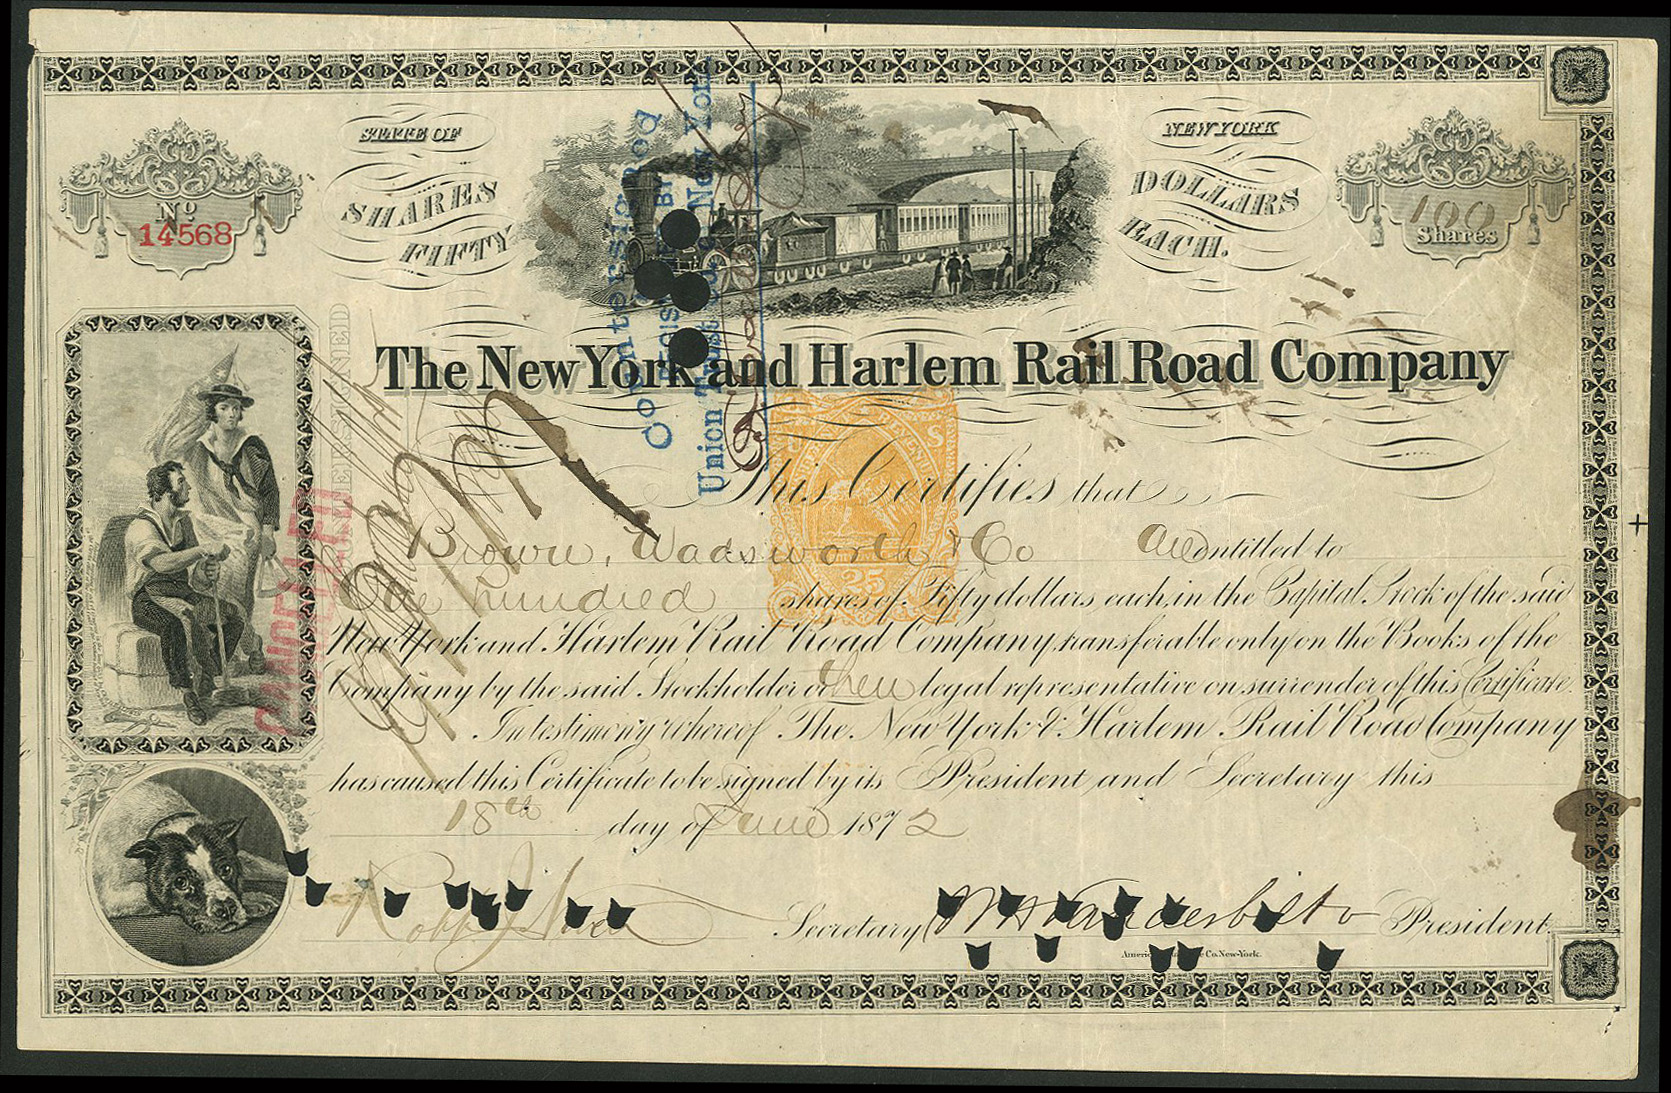 STATE OF
NEW YORK
SHARES
DOLLARS
FIFTY
EACH.
No.
14568
100
Shares
Countersigned
Union Trust Co. New York
The New York and Harlem Rail Road Company
CANCELLED
This Certifies that
Brown, Wadsworth & Co are entitled to
One hundred shares of Fifty dollars each, in the Capital Stock of the said
New York and Harlem Rail Road Company, transferable only on the Books of the
Company by the said Stockholder or their legal representative on surrender of this Certificate.
In testimony whereof The New York & Harlem Rail Road Company
has caused this Certificate to be signed by its President and Secretary this
18th day of June 1872
25
Secretary Wm H Vanderbilt President
Co. New-York.